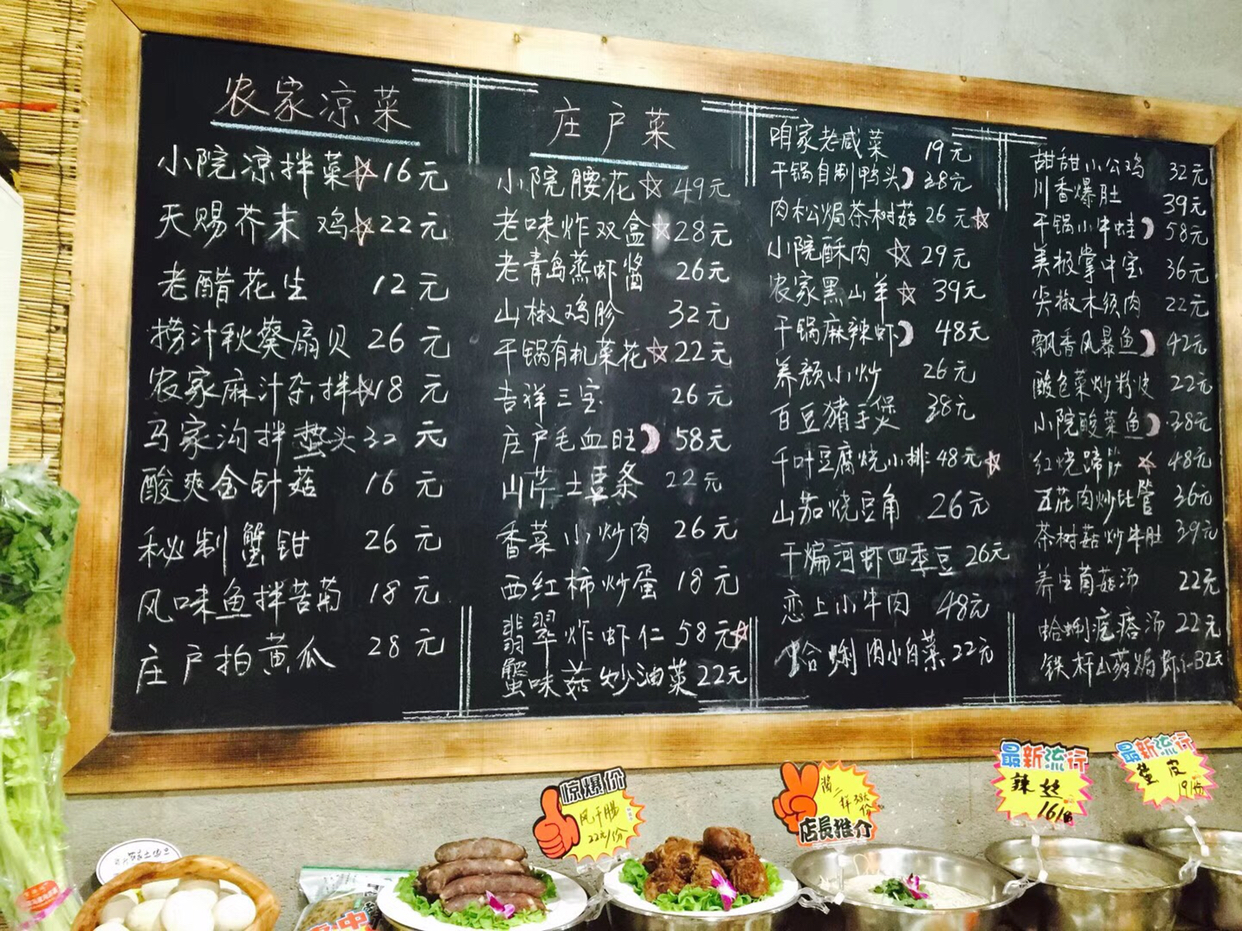 农家凉菜
小院凉拌菜☆16元
天赐芥末鸡☆22元
老醋花生 12元
捞汁秋葵扇贝 26元
农家麻汁杂拌☆18元
马家沟拌蛰头32元
酸爽金针菇 16元
秘制蟹钳 26元
风味鱼拌苦菊 18元
庄户拍黄瓜 28元
庄户菜
小院腰花☆49元
老味炸双盒☆28元
老青岛蒸虾酱 26元
山椒鸡胗 32元
干锅有机菜花☆22元
吉祥三宝 26元
庄户毛血旺 58元
山芹土豆条 22元
香菜小炒肉 26元
西红柿炒蛋 18元
翡翠炸虾仁 58元☆
蟹味菇炒油菜 22元
咱家老咸菜 19元
干锅自制鸭头 38元
肉松焗茶树菇 26元☆
小院酥肉☆29元
农家黑山羊☆39元
干锅麻辣虾 48元
养颜小炒 26元
百豆猪手煲 38元
千叶豆腐烧小排 48元☆
山茄烧豆角 26元
干煸河虾四季豆 26元
恋上小牛肉 48元
蛤蜊肉小白菜 22元
甜甜小公鸡 32元
川香爆肚 39元
干锅小牛蛙 58元
美极掌中宝 36元
尖椒木须肉 22元
飘香风暴鱼 42元
酸包菜炒粉皮 22元
小院酸菜鱼 38元
红烧蹄筋☆48元
五花肉炒比管 36元
茶树菇炒牛肚 39元
养生菌菇汤 22元
蛤蜊疙瘩汤 22元
铁杆山药焗虾仁32元
惊爆价
风干肠
22元/份
店员推介
最新流行
辣丝
16/份
最新流行
蛰皮
19/份